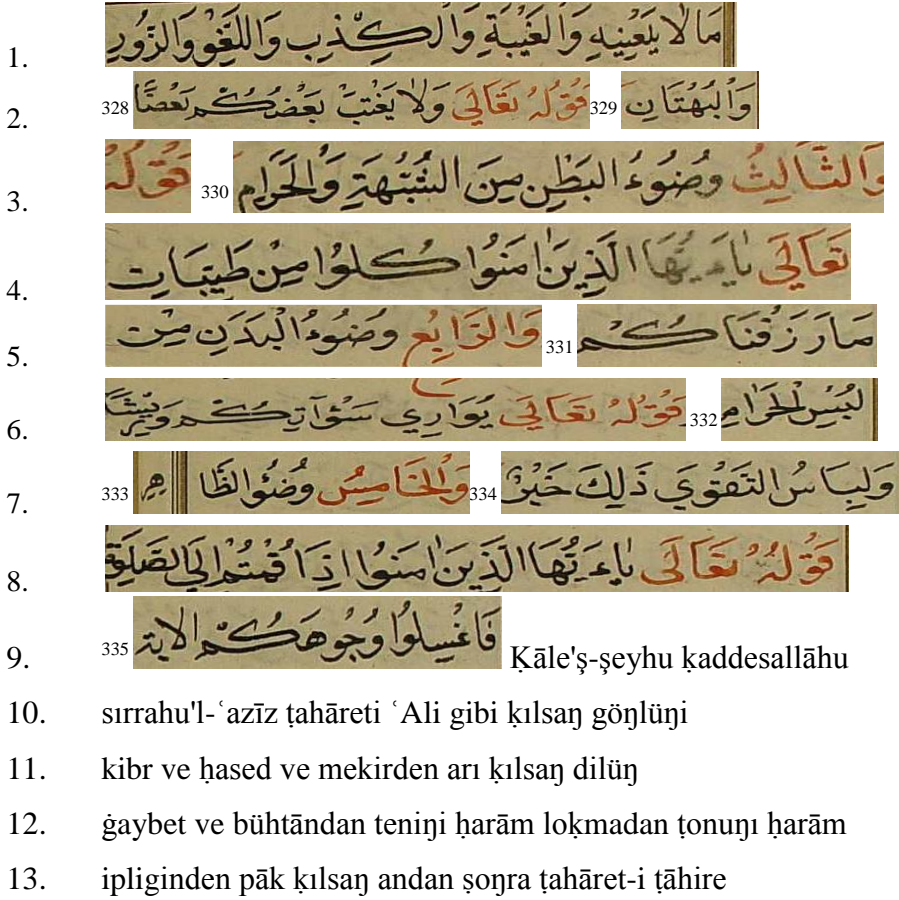 1. مَالَا يَعْنِيهِ وَالْغَيْبَةِ وَالْكِذْبِ وَاللَّغْوِ وَالزُّورِ
2. وَالْبُهْتَانِ 329 قَوْلُهُ تَعَالَى وَلَا يَغْتَبْ بَعْضُكُمْ بَعْضًا 328
3. وَالثَّالِثُ وُضُوءُ الْبَطْنِ مِنَ الشُّبْهَةِ وَالْحَرَامِ 330 قَوْلُهُ
4. تَعَالَى يَاءَيُّهَا الَّذِينَ اٰمَنُوا كُلُوا مِنْ طَيِّبَاتِ
5. مَارَزَقْنَاكُمْ 331 وَالرَّابِعُ وُضُوءُ الْبَدَنِ مِنْ
6. لُبْسِ الْحَرَامِ 332 قَوْلُهُ تَعَالَى يُوَارِي سَوْآتِكُمْ وَرِيشًا
7. وَلِبَاسُ التَّقْوَى ذَلِكَ خَيْرٌ 334 وَالْخَامِسُ وُضُوُ الظَّا هِرِ 333
8. قَوْلُهُ تَعَالَى يَاءَيُّهَا الَّذِينَ اٰمَنُوا اِذَا قُمْتُمْ اِلَى الصَّلٰوةِ
9. فَاغْسِلُوا وُجُوهَكُمْ الاية 335 Ḳāle'ş-şeyhu ḳaddesallāhu
10. sırrahu'l-ʿazīz ṭahāreti ʿAli gibi ḳılsaŋ göŋlüŋi
11. kibr ve ḥased ve mekirden arı ḳılsaŋ dilüŋ
12. ġaybet ve bühtāndan teniŋi ḥarām loḳmadan ṭonuŋı ḥarām
13. ipliginden pāk ḳılsaŋ andan ṣoŋra ṭahāret-i ṭāhire